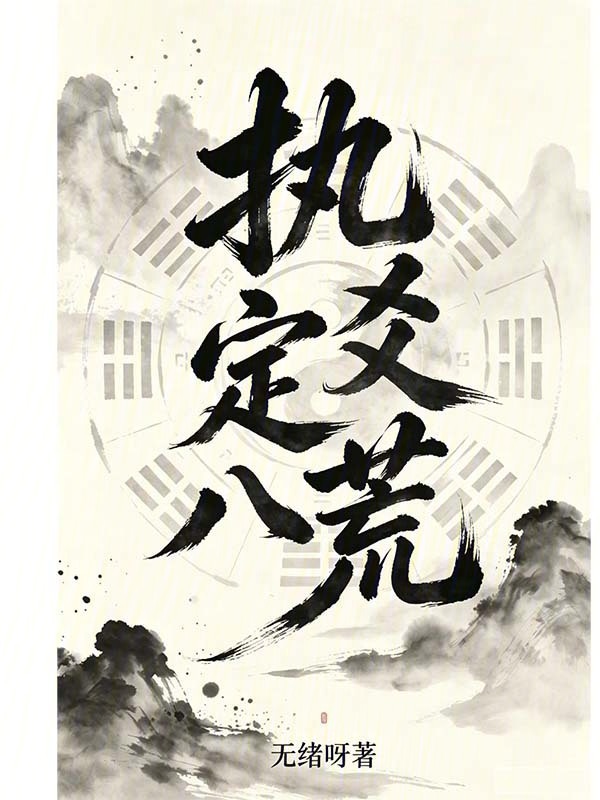 执爻
定
八荒
无绪呀著